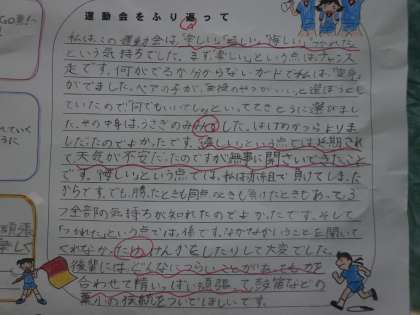 運動会をふり返って
私は、この運動会は、「楽しい」「嬉しい」「悔しい」「つかれた」
という気持ちでした。まず「楽しい」という点は、チャンス
走です。何がでるか分からないカードで私は、
がでました。ペアの子が、
ていたので「何でもいいでしょ」といっててきとうに選びまし
た。その中身は、うさぎのみみでした。はげのかつらよりまし
だったのでよかったです。「嬉しい」という点では、延期され
て天気が不安だったのですが無事に開さいできたこと
です。「悔しい」という点では、私は赤組で負けてしまった
からです。でも、勝ったときも同点のときも負けたときもあって、3
つ全部の気持ちが知れたのでよかったです。そして、
「つかれた」という点では、係です。なかなかいうことを聞いて
くれなかったり、けんかをしたりして大変でした。
後輩には、どんなにつらいことがあっても力を
合わせて精いっぱい頑張って、
の伝統をついでほしいです。